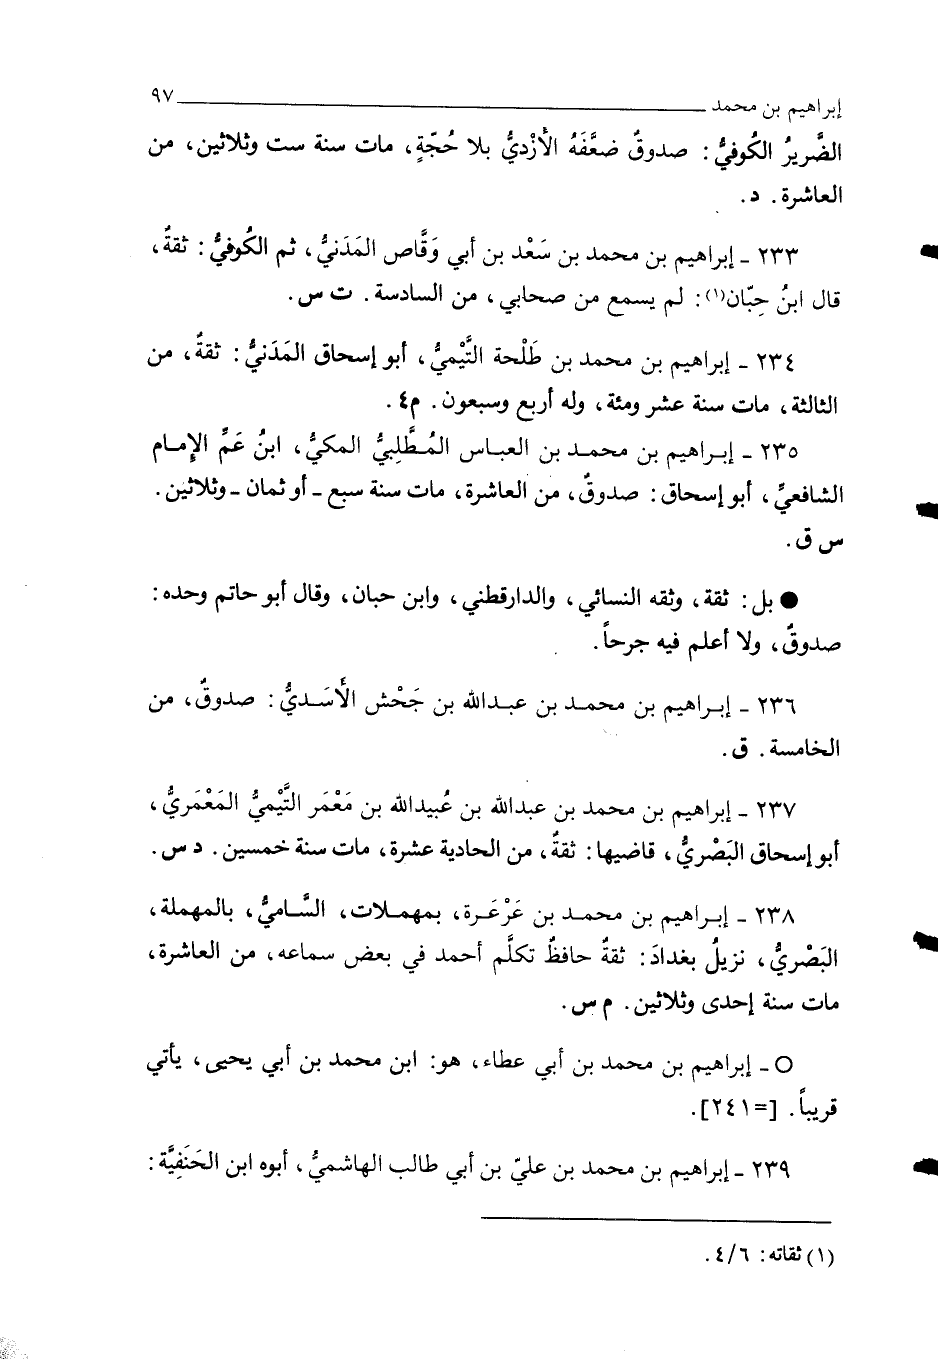 إبراهيم بن محمد ٩٧
الضَّريرُ الكُوفيُّ: صدوقٌ ضعَّفَهُ الأَزْديُّ بلا حُجّةٍ، مات سنة ست وثلاثين، من
العاشرة. د.
٢٣٣ - إبراهيم بن محمد بن سَعْد بن أبي وَقَّاص المَدَنيُّ، ثم الكُوفيُّ: ثقةٌ،
قال ابنُ حِبّان(١): لم يسمع من صحابي، من السادسة. ت س.
٢٣٤ - إبراهيم بن محمد بن طَلْحة التَّيْميُّ، أبو إسحاق المَدَنيُّ: ثقةٌ، من
الثالثة، مات سنة عشر ومئة، وله أربع وسبعون. م٤.
٢٣٥ - إبراهيم بن محمد بن العباس المُطَّلِبيُّ المكيُّ، ابنُ عَمِّ الإمام
الشافعيِّ، أبو إسحاق: صدوقٌ، من العاشرة، مات سنة سبع - أو ثمان - وثلاثين.
س ق.
● بل: ثقة، وثقه النسائي، والدارقطني، وابن حبان، وقال أبو حاتم وحده:
صدوقٌ، ولا أعلم فيه جرحاً.
٢٣٦ - إبراهيم بن محمد بن عبدالله بن جَحْش الأَسَديُّ: صدوقٌ، من
الخامسة. ق.
٢٣٧ - إبراهيم بن محمد بن عبدالله بن عُبيدالله بن مَعْمَر التَّيْميُّ المَعْمَريُّ،
أبو إسحاق البَصْريُّ، قاضيها: ثقةٌ، من الحادية عشرة، مات سنة خمسين. د س.
٢٣٨ - إبراهيم بن محمد بن عَرْعَرة، بمهملات، السَّاميُّ، بالمهملة،
البَصْريُّ، نزيلُ بغدادَ: ثقةٌ حافظٌ تكلَّم أحمد في بعض سماعه، من العاشرة،
مات سنة إحدى وثلاثين. م س.
○ - إبراهيم بن محمد بن أبي عطاء، هو: ابن محمد بن أبي يحيى، يأتي
قريباً. [=٢٤١].
٢٣٩ - إبراهيم بن محمد بن عليّ بن أبي طالب الهاشميُّ، أبوه ابن الحَنَفِيَّة:
(١) ثقاته: ٤/٦.